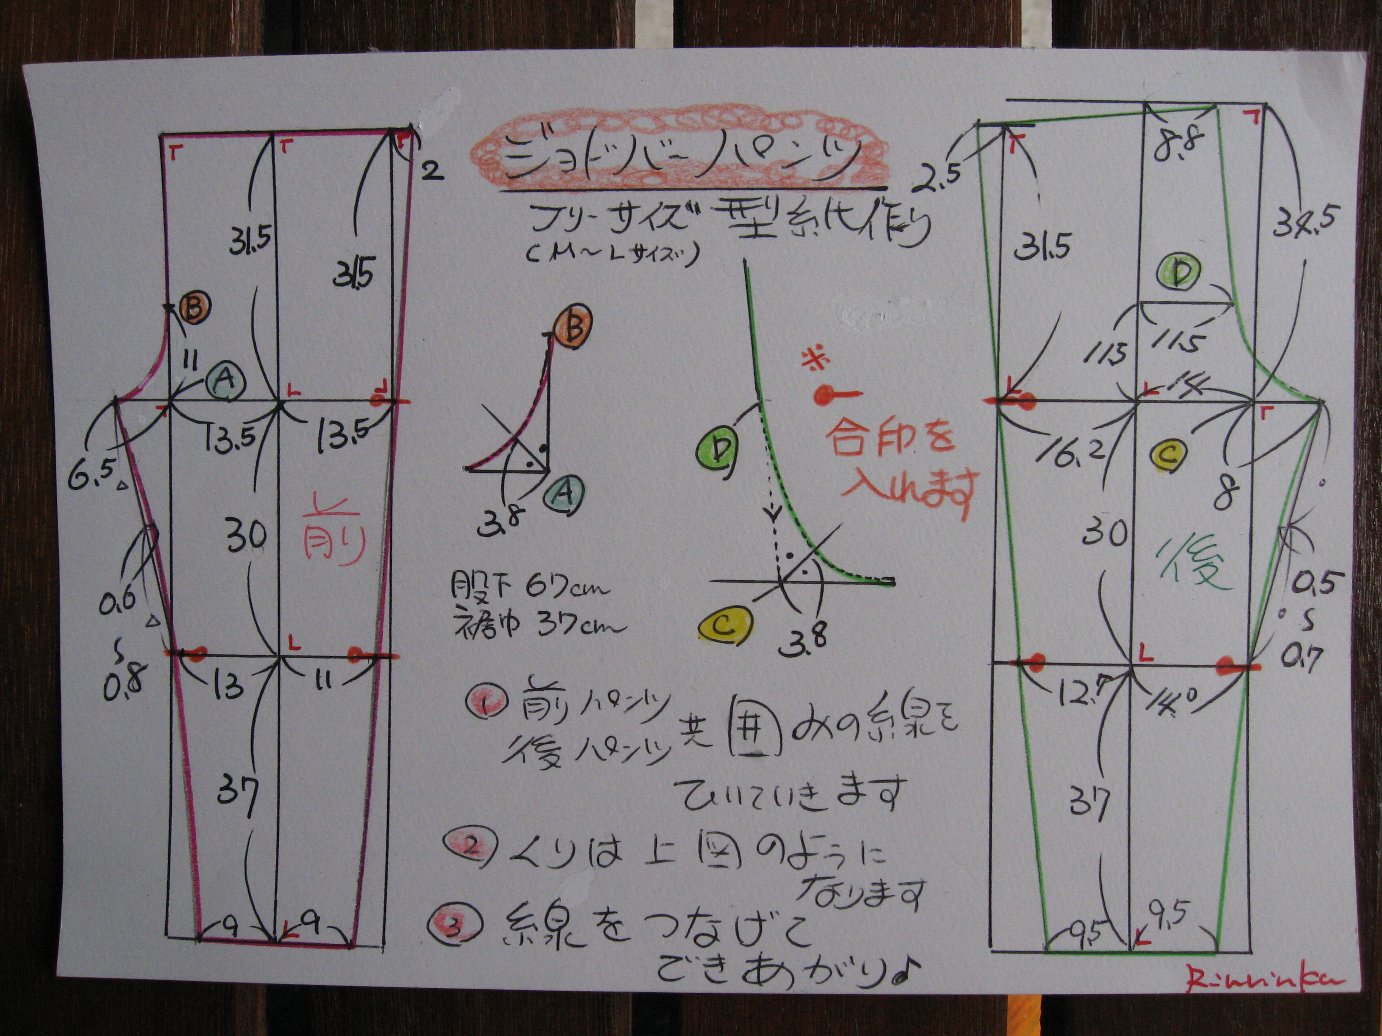 ジョドバーパンツ
フリーサイズ 型紙作り
(M〜Lサイズ)
2
31.5
31.5
B
11
A
13.5
13.5
6.5
△
30
前
0.6
△
S
0.8
13
11
37
9
9
B
3.8
A
D
C
3.8
※
合印を
入れます
股下 67cm
裾巾 37cm
① 前パンツ
後パンツ
共 囲みの線を
ひいていきます
② くりは上図のように
なります
③ 線をつなげて
できあがり♪
2.5
8.8
31.5
34.5
D
11.5
11.5
14
16.2
C
8
30
後
0.5
S
0.7
12.7
14
37
9.5
9.5
Rinrinka